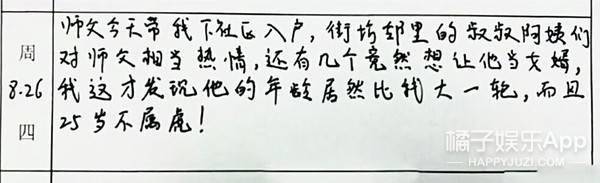 周
8.26
四
师父今天带我下社区入户，街坊邻里的叔叔阿姨们
对师父相当热情，还有几个竟然想让他当女婿，
我这才发现他的年龄居然比我大一轮，而且
25岁不属虎！
橘子娱乐App
HAPPYJUZI.COM